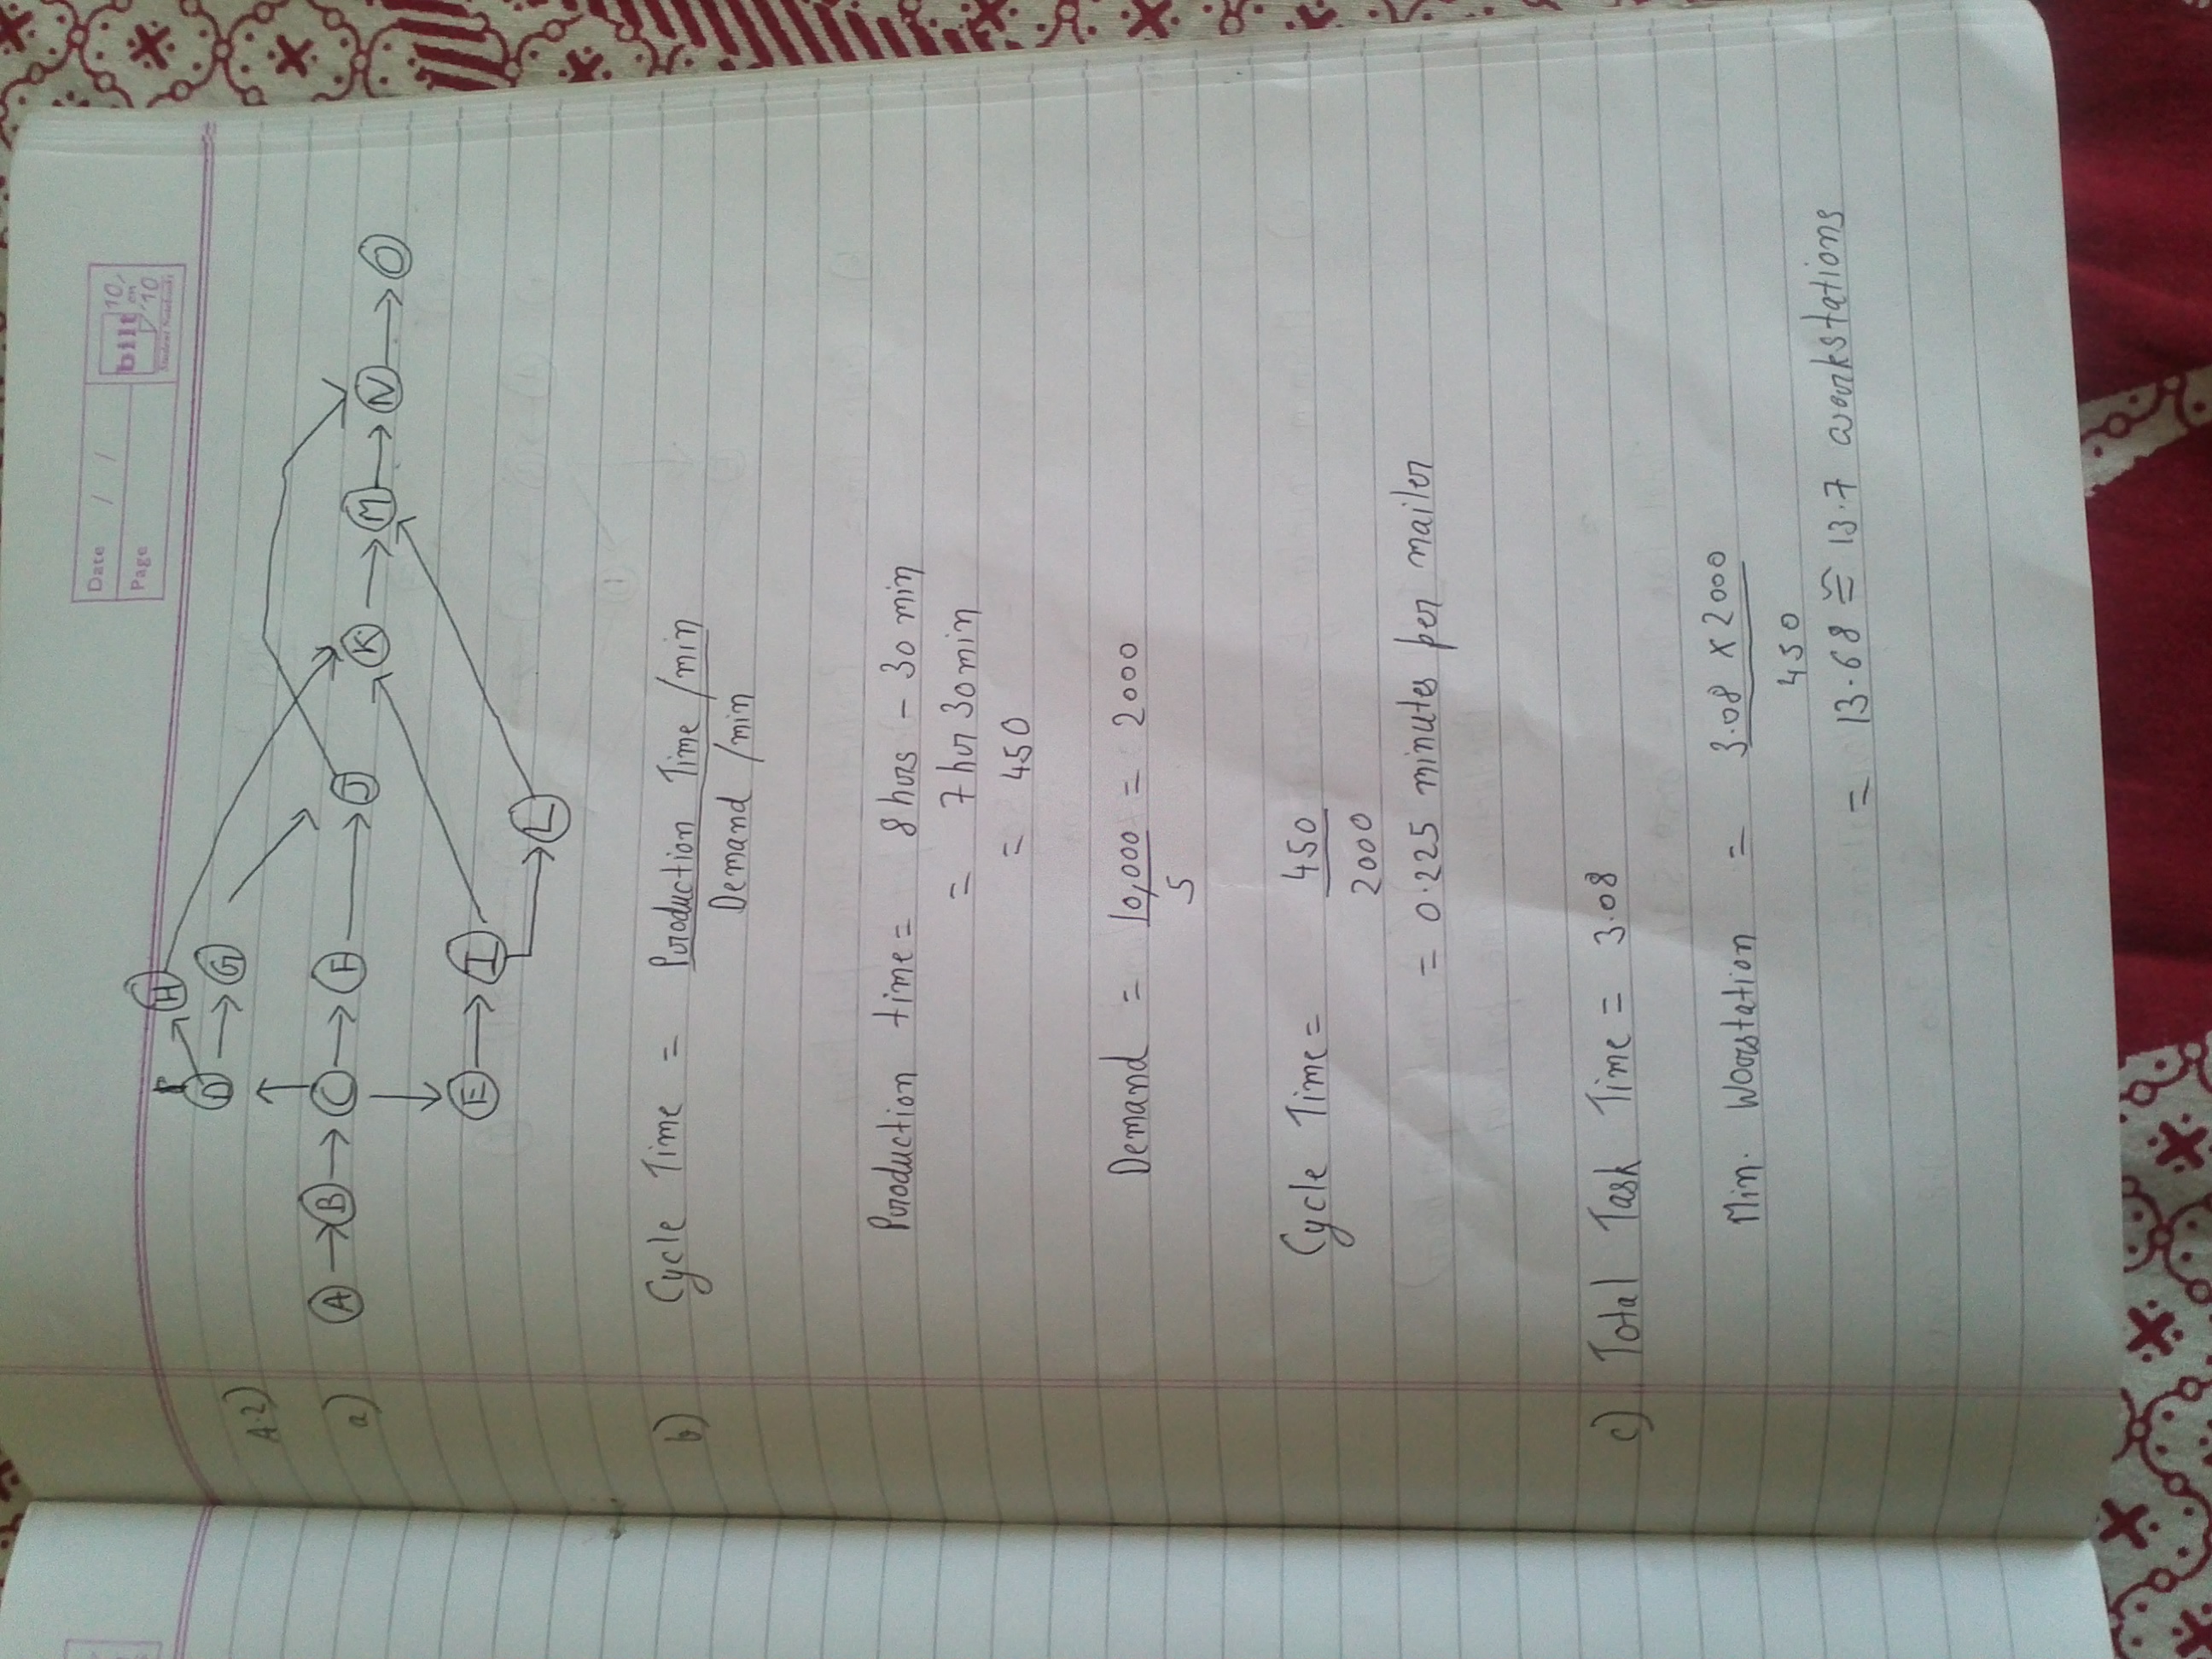 Date / /
Page
bilt
10
on
10
Student Notebooks
A.2)
a)
H
D → G
A → B → C → F → J K → M → N → O
E → I
L
b) Cycle Time = Production Time/min
Demand /min
Production time = 8 hrs - 30 min
= 7 hr 30min
= 450
Demand = 10,000 = 2000
5
Cycle Time = 450
2000
= 0.225 minutes per mailer
c) Total Task Time = 3.08
Min. Worstation = 3.08 x 2000
450
= 13.68 ≅ 13.7 workstations